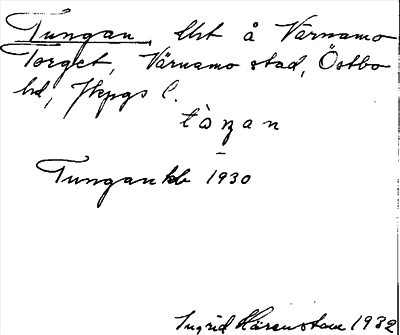 Tungan, Urt å Värnamo
Torget, Värnamo stad, Östbo
hd, Jkpgs l.
tàŋan
Tungan kb 1930
Ingrid Härenstam 1932